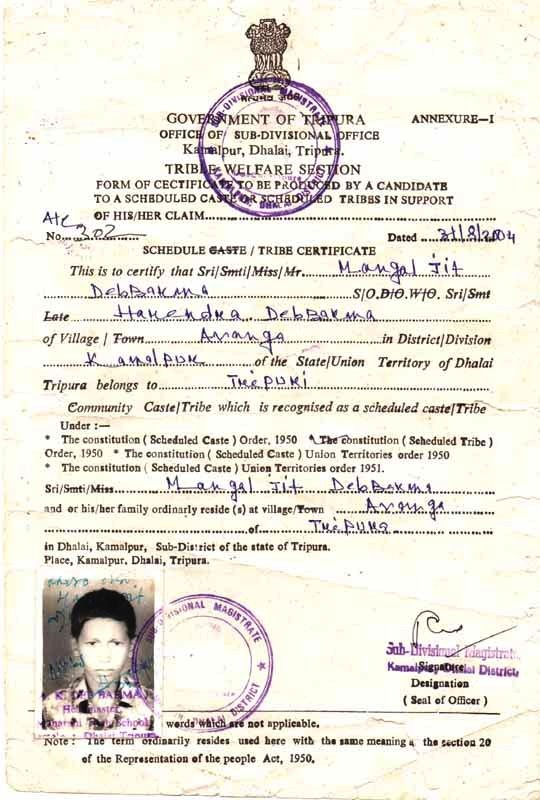 सत्यमेव जयते
GOVERNMENT OF TRIPURA ANNEXURE—I
OFFICE OF SUB-DIVISIONAL OFFICE
Kamalpur, Dhalai, Tripura.
TRIBLE WELFARE SECTION
FORM OF CECTIFICATE TO BE PRODUCED BY A CANDIDATE
TO A SCHEDULED CASTE OR SCHEDULED TRIBES IN SUPPORT
OF HIS/HER CLAIM
No. 302 Dated 31/8/2004
SCHEDULE CASTE / TRIBE CERTIFICATE
This is to certify that Sri/Smti/Miss/Mr. Mangal Jit
DebBarma S/O.D/O.W/O. Sri/Smt
Late Harendra DebBarma
of Village / Town Avanga in District/Division
Kamalpur of the State/Union Territory of Dhalai
Tripura belongs to Tripuri
Community Caste/Tribe which is recognised as a scheduled caste/Tribe
Under :—
* The constitution ( Scheduled Caste ) Order, 1950 * The constitution ( Scheduled Tribe )
Order, 1950 * The constitution ( Scheduled Caste ) Union Territories order 1950
* The constitution ( Scheduled Caste ) Union Territories order 1951.
Sri/Smti/Miss Mangal Jit DebBarma
and or his/her family ordinarly reside (s) at village/Town Avanga
of Tripura
in Dhalai, Kamalpur, Sub-District of the state of Tripura.
Place, Kamalpur, Dhalai, Tripura.
SUB-DIVISIONAL MAGISTRATE
Sub-Divisional Magistrate
Kamalpur, Dhalai District.
Signature
Designation
( Seal of Officer )
A. K. DEBBARMA
Headmaster
High School
Dhalai Tripura
words which are not applicable.
Note : The term ordinarily resides used here with the same meaning a the section 20
of the Representation of the people Act, 1950.